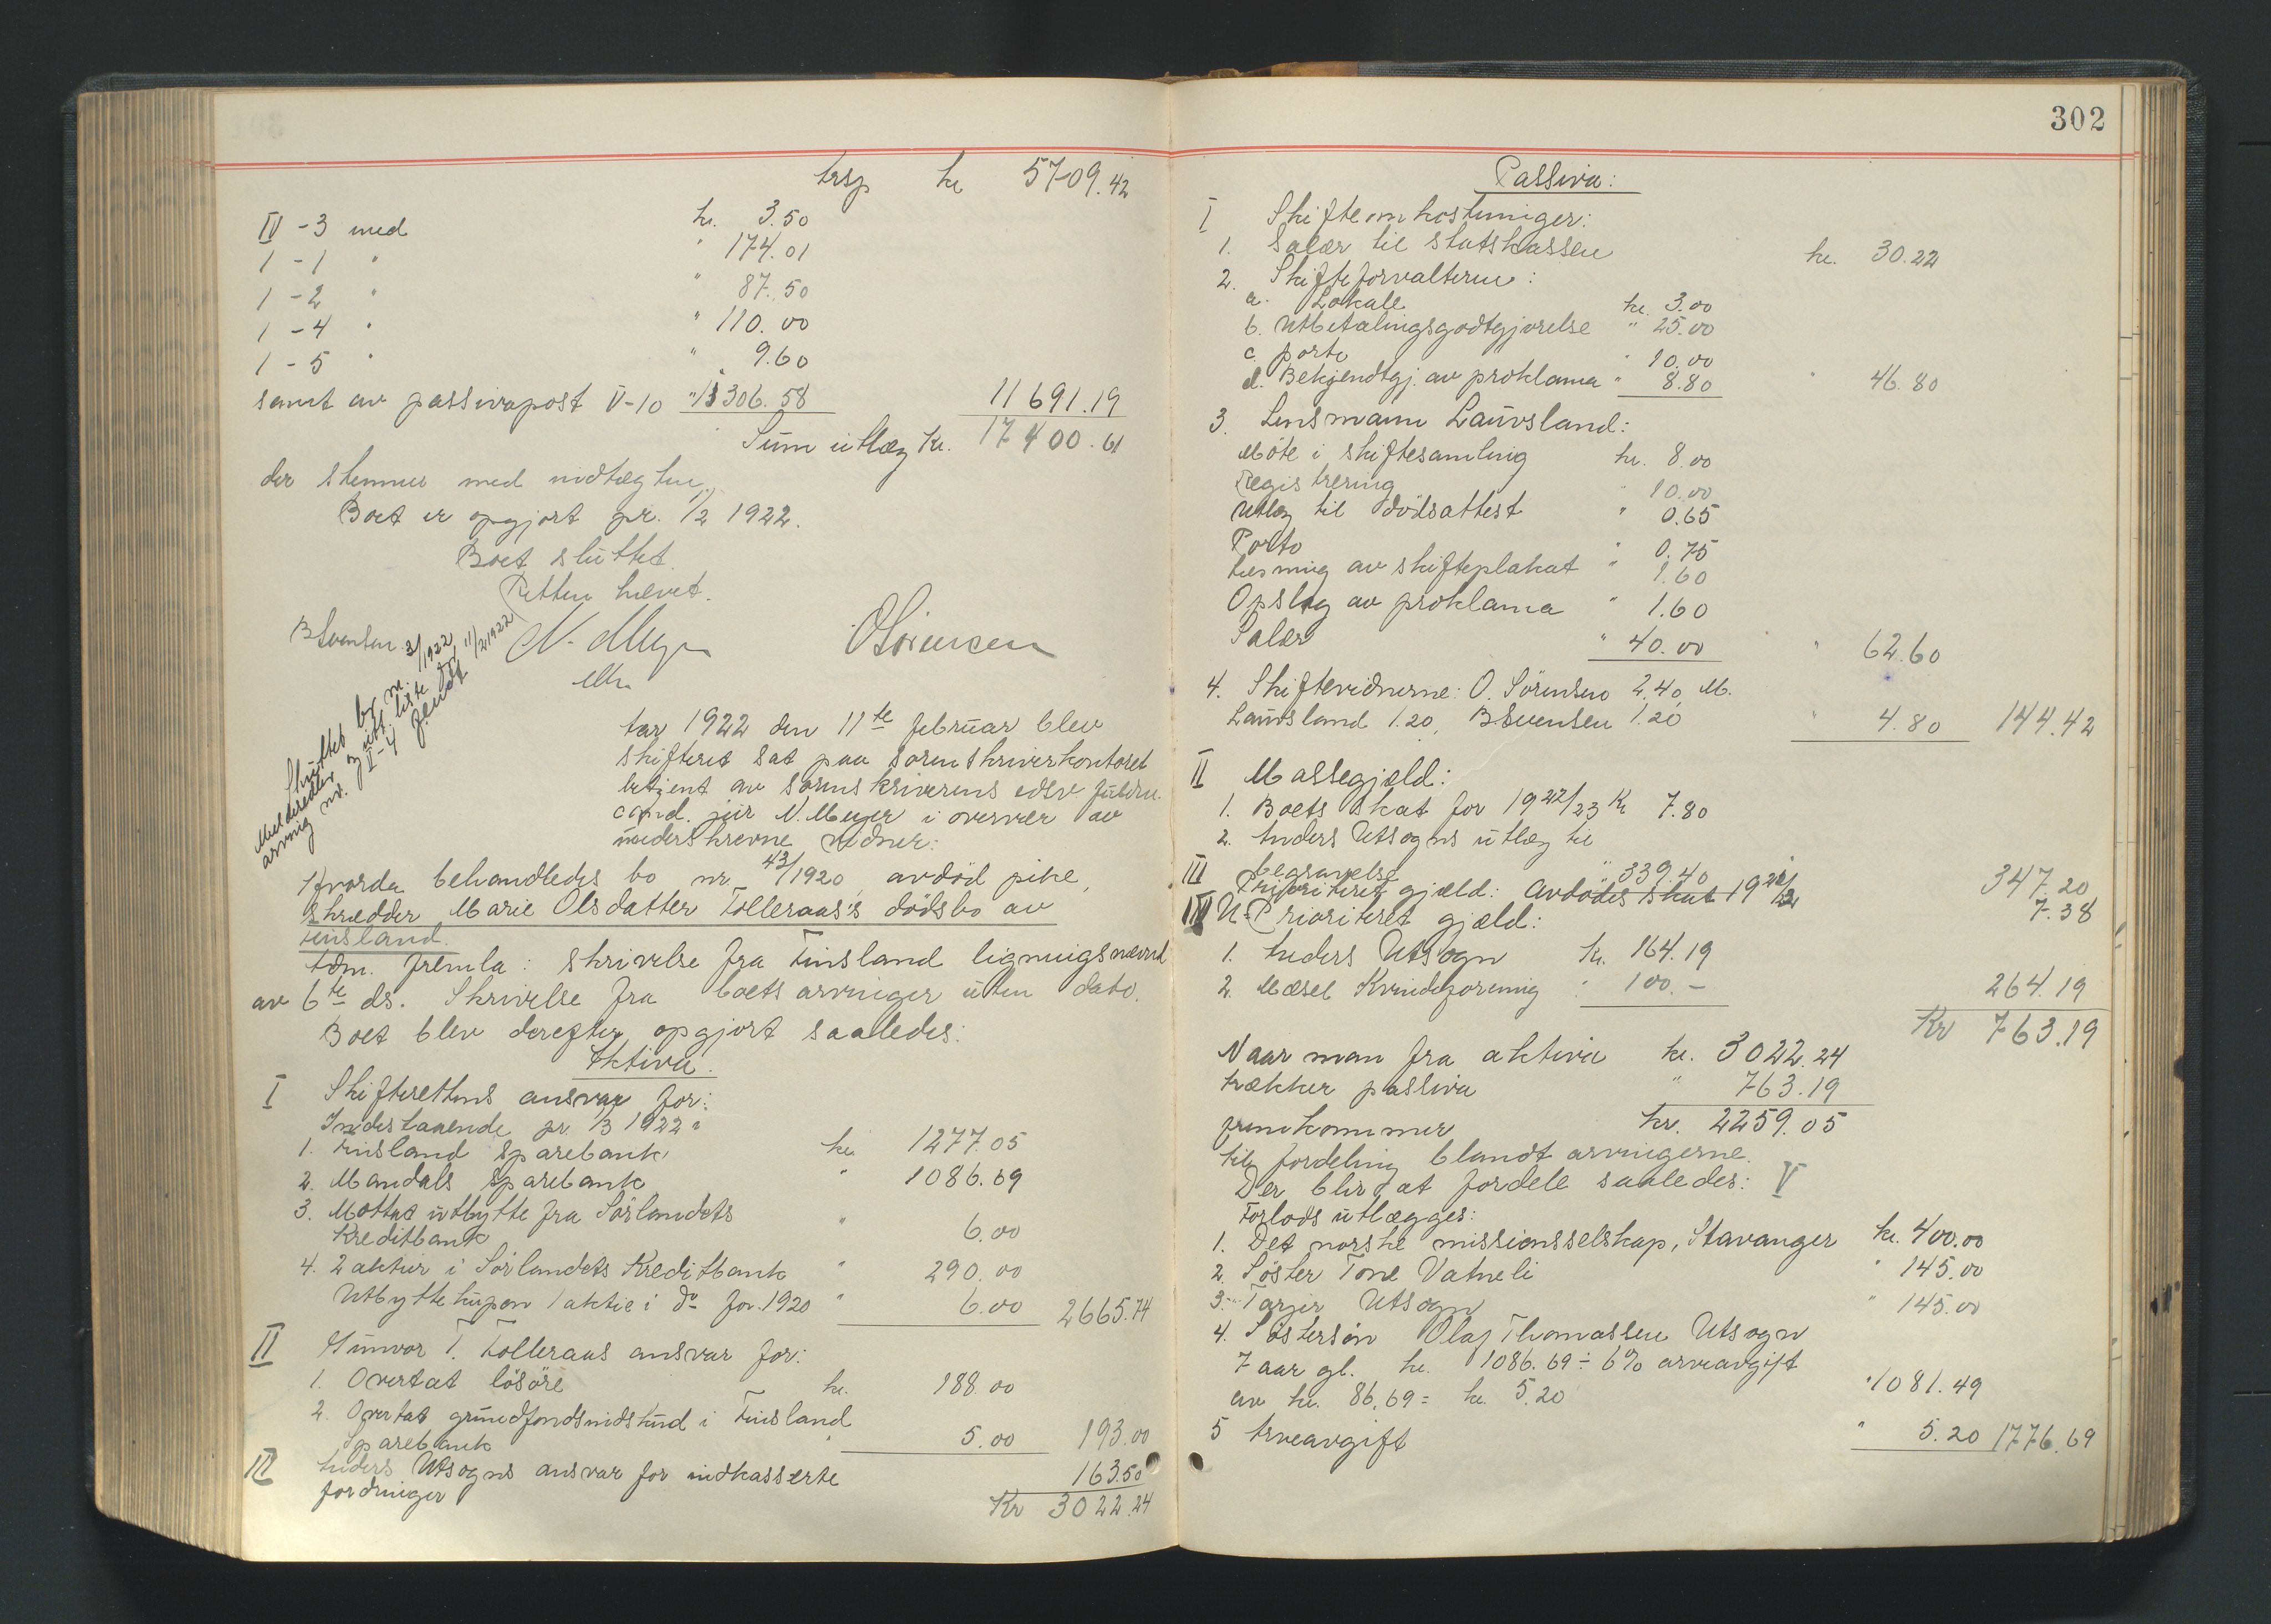 trsp kr 5709.42
IV - 3 med kr. 3.50
1 - 1 " " 174.01
1 - 2 " " 87.50
1 - 4 " " 110.00
1 - 5 " " 9.60
samt av passivapost V-10 " 11306.58 11691.19
Sum utlæg Kr. 17400.61
der stemmer med indtægten.
Boet er opgjort pr. 1/2 1922.
Boet sluttet.
Retten hævet.
BSvensen N. Meyer OSørensen
Aar 1922 den 11te februar blev
skifteret sat paa sorenskriverkontoret
betjent av sorenskriverens edsv. fuldm.
cand. jur N. Meyer i overvær av
underskrevne vidner:
Hvorda behandledes bo nr 43/1920, avdød pike,
skrædder Marie Olsdatter Tolleraas's dødsbo av
Finsland.
Adm. fremla: skrivelse fra Finsland ligningsnævnd
av 6te ds. Skrivelse fra boets arvinger uten dato.
Boet blev derefter opgjort saaledes:
Aktiva.
I Skifterettens ansvar for:
Indestaaende pr. 1/3 1922 i
1. Finsland Sparebank kr. 1277.05
2. Mandals Sparebank " 1086.69
3. Mottat utbytte fra Sørlandets
Kreditbank " 6.00
4. 2 aktier i Sørlandets Kreditbank " 290.00
Utbyttekupon 1 aktie i do for 1920 " 6.00 2665.74
II Gunvor T. Tolleraas ansvar for:
1. Overtat løsøre kr. 188.00
2. Overtat grundfondsindskud i Finsland
Sparebank " 5.00 193.00
III Anders Utsogns ansvar for indkasserte
fordringer 163.50
Kr 3022.24
302
Passiva:
I Skifteomkostninger:
1. Salær til statskassen kr. 30.22
2. Skifteforvalteren:
a. Lokale kr. 3.00
b. Utbetalingsgodtgjørelse " 25.00
c. porto " 10.00
d. Bekjendtgj. av proklama " 8.80 " 46.80
3. Lensmann Lauvsland:
Møte i skiftesamling kr. 8.00
Registrering " 10.00
Utlæg til dødsattest " 0.65
Porto " 0.75
Læsning av skifteplakat " 1.60
Opslag av proklama " 1.60
Salær " 40.00 " 62.60
4. Skiftevidnerne: O. Sørensen 2.40, M.
Lauvsland 1.20, BSvensen 1.20 " 4.80 144.42
II Massegjæld:
1. Boets skat for 1922/23 Kr 7.80
2. Anders Utsogns utlæg til
begravelse " 339.40 347.20
III Prioriteret gjæld: Avdødes skat 1921/22 7.38
IV U-Prioriteret gjæld:
1. Anders Utsogn kr. 164.19
2. Mæsel Kvindeforening " 100.- 264.19
Kr 763.19
Naar man fra aktiva kr. 3022.24
trækker passiva " 763.19
fremkommer kr. 2259.05
til fordeling blandt arvingerne.
Der blir at fordele saaledes: V
Forlods utlægges:
1. Det norske missionsselskap, Stavanger kr. 400.00
2. Søster Tone Vatneli " 145.00
3. " Tarjer Utsogn " 145.00
4. Søstersøn Olaf Thomassen Utsogn
7 aar gl. kr. 1086.69 ÷ 6% arveavgift
av kr. 86.69 = kr. 5.20 " 1081.49
5 Arveavgift " 5.20 1776.69